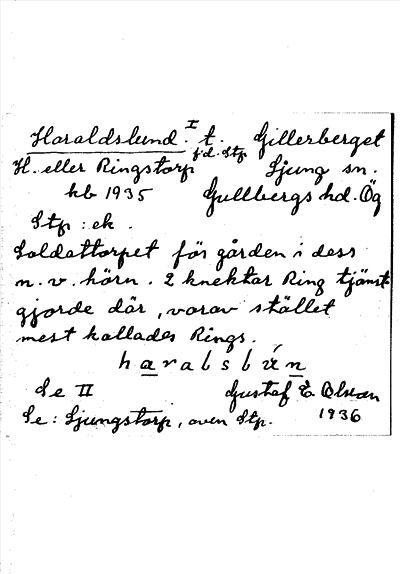 Haraldslund. I t. Gillerberget
f.d. Stp
H. eller Ringstorp Ljung sn.
kb 1935 Gullbergs hd. Ög
Stp : ek.
Soldattorpet för gården i dess
n. v. hörn. 2 knektar Ring tjänst-
gjorde där, varav stället
mest kallades Rings.
haralsbún
Se II Gustaf E. Olsson
Se : Ljungstorp, även Stp. 1936